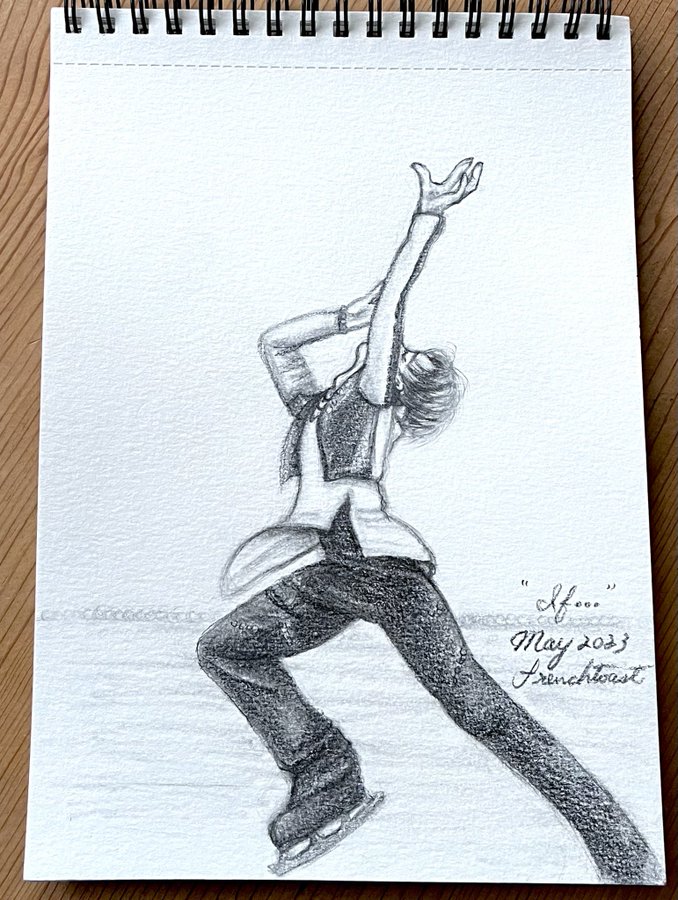 "If..."
May 2023
Frenchtoast